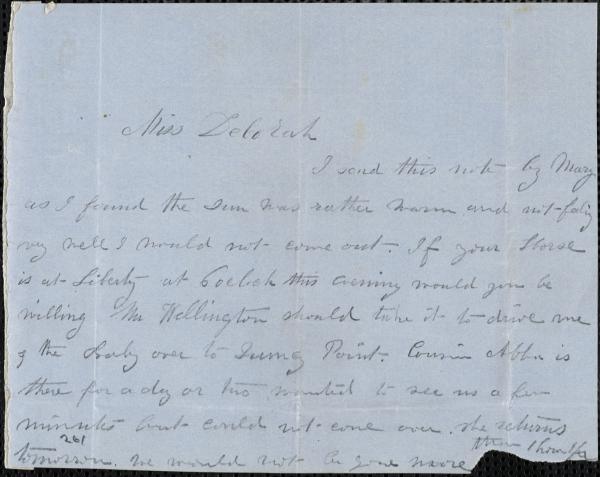 Miss Deborah
I send this note by Mary
as I found the sun was rather warm and not
very well I would not come out. If your Horse
is at Liberty at 6 oclock this evening would you be
willing Mr Wellington should take it to drive me
& the Baby over to Point. Cousin Abba is
there for a day or two wanted to see us a few
minutes but could not come over. she returns
261
tomorrow. we would not be gone more than 1 hour